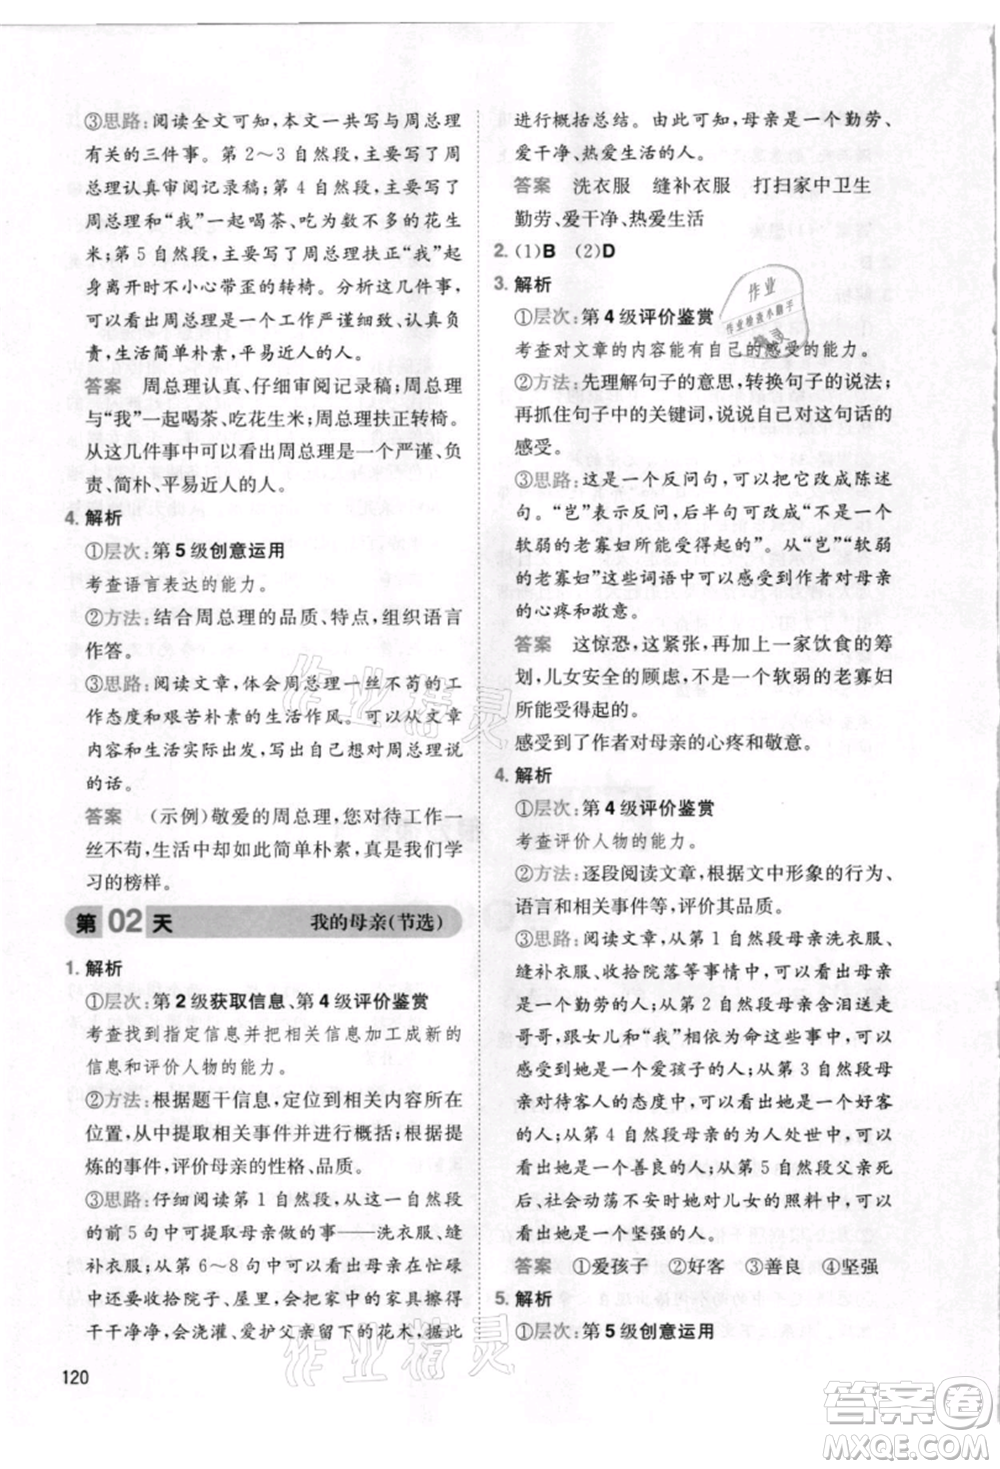 ③思路:阅读全文可知,本文一共写与周总理
有关的三件事。第2～3自然段,主要写了周
总理认真审阅记录稿;第4自然段,主要写了
周总理和“我”一起喝茶、吃为数不多的花生
米;第5自然段,主要写了周总理扶正“我”
离开时不小心带歪的转椅。分析这几件事,
可以看出周总理是一个工作严谨细致、认真负
责,生活简单朴素,平易近人的人。
答案 周总理认真、仔细审阅记录稿;周总理
与“我”一起喝茶、吃花生米;周总理扶正转椅。
从这几件事中可以看出周总理是一个严谨、负
责、简朴、平易近人的人。
4. 解析
①层次:第5级创意运用
考查语言表达的能力。
②方法:结合周总理的品质、特点,组织语言
作答。
③思路:阅读文章,体会周总理一丝不苟的工
作态度和艰苦朴素的生活作风。可以从文章
和生活实际出发,写出自己想对周总理说
的话。
答案 (示例)敬爱的周总理,您对待工作一
丝不苟,生活中却是如此简单朴素,真是我们学
习的榜样。
第02天 我的母亲(节选)
1. 解析
①层次:第2级获取信息、第4级评价鉴赏
考查找到指定信息并把相关信息加工成新的
信息和评价人物的能力。
②方法:根据题干信息,定位到相关内容所在
位置,从中提取相关事件并进行概括;根据提
炼的事件,评价母亲的性格、品质。
③思路:仔细阅读第1自然段,从这一自然段
的前5句中可提取母亲做的事——洗衣服、缝
补衣服;从第6～8句中可以看出母亲在忙碌
中还要收拾院子、屋里,会把家中的家具弄得
干干净净,会浇灌、爱护父亲留下的花木,据此
120
进行概括总结。由此可知,母亲是一个勤劳、
爱干净、热爱生活的人。
答案 洗衣服 缝补衣服 打扫家中卫生
勤劳、爱干净、热爱生活
2. (1)B (2)D
3. 解析
①层次:第4级评价鉴赏
考查对文章的内容能有自己的感受的能力。
②方法:先理解句子的意思,转换句子的说法;
再抓住句子中的关键词,说说自己对这句话的
感受。
③思路:这是一个反问句,可以把它改成陈述
句。“岂”表示反问,后半句可改成“不是一个
软弱的老寡妇所能受得起的”。从“岂”“软弱
的老寡妇”这些词语中可以感受到作者对母亲
的心疼和敬意。
答案 这惊恐,这紧张,再加上一家饮食的筹
划,儿女安全的顾虑,不是一个软弱的老寡妇
所能受得起的。
感受到了作者对母亲的心疼和敬意。
4. 解析
①层次:第4级评价鉴赏
考查评价人物的能力。
②方法:逐段阅读文章,根据文中相关的行为、
语言和具体事例,对母亲进行评价。
③思路:阅读文章,从第1自然段母亲洗衣服、
缝补衣服、收拾院落等事情中,可以看出她是
一个勤劳的人;从第2自然段母亲含泪送走
哥哥,跟女儿和“我”相依为命这些事中,可以
看出她是一个爱孩子的人;从第3自然段母
亲对待客人的态度中,可以看出她是一个好客
的人;从第4自然段母亲的为人处世中,可以
看出她是一个善良的人;从第5自然段父亲死
后、社会动荡不安时她对儿女的照料中,可以
看出她是一个坚强的人。
答案 ①爱孩子 ②好客 ③善良 ④坚强
5. 解析
①层次:第5级创意运用
作业
作业检查小助手
精灵
作业精灵
作业精灵
答案圈
MXQE.COM